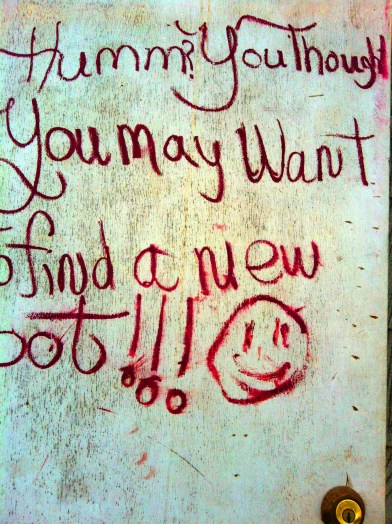 Humm? You Though
You may Want
o find a new
oot!!!